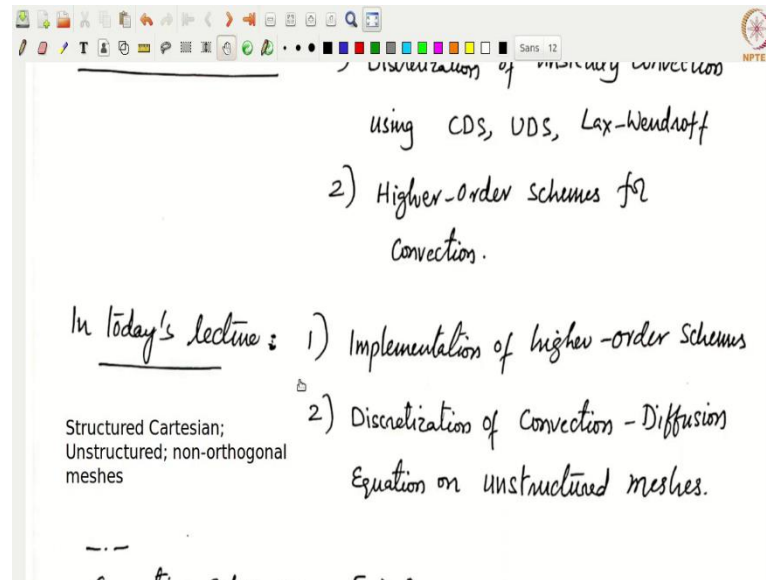 Sans 12
NPTE
using CDS, UDS, Lax-Wendroff
2) Higher-order schemes for
Convection.
In today's lecture: 1) Implementation of higher-order Schemes
2) Discretization of Convection - Diffusion
Equation on unstructured meshes.
Structured Cartesian;
Unstructured; non-orthogonal
meshes